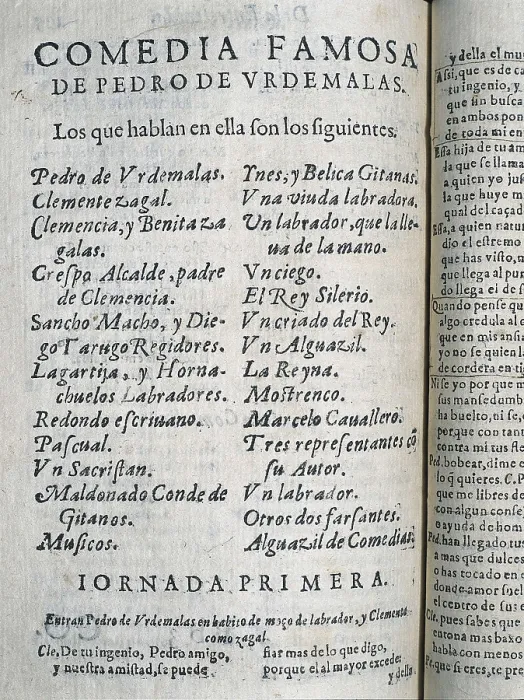 COMEDIA FAMOSA
DE PEDRO DE VRDEMALAS.
Los que hablan en ella ſon los ſiguientes.
Pedro de Vrdemalas.
Clemente zagal.
Clemencia, y Benita za
galas.
Creſpo Alcalde, padre
de Clemencia.
Sancho Macho, y Die-
go Tarugo Regidores.
Lagartija, y Horna-
chuelos Labradores.
Redondo eſcriuano.
Paſcual.
Vn Sacriſtan.
Maldonado Conde de
Gitanos.
Muſicos.
Ynes, y Belica Gitanas.
Vna viuda labradora.
Un labrador, que la lle-
ua de la mano.
Vn ciego.
El Rey Silerio.
Vn criado del Rey.
Vn Alguazil.
La Reyna.
Moſtrenco.
Marcelo Cauallero.
Tres repreſentantes cõ
ſu Autor.
Vn labrador.
Otros dos farſantes.
Alguazil de Comedias.
IORNADA PRIMERA.
Entran Pedro de Vrdemalas en habito de moço de labrador, y Clemente
como zagal.
Cle. De tu ingenio, Pedro amigo,
y nueſtra amiſtad, ſe puede
fiar mas de lo que digo,
porque el al mayor excede:
y della
y della el mu
Aſsi, que es de ca
tu ingenio, y
que ſin buſca
en ambos pon
de toda mi en
Eſſa hija de tu am
la que ſe llama
a quien yo
la que huye m
qual del caçad
Eſſa, a quien natur
dio el eſtremo
que has viſto, m
que llega al pun
do llega el de ſ
Quando penſe qu
algo credula al c
que en mis anſia
yo no ſe quien la
de cordera en ti
Ni ſe yo por que m
ſus manſedumb
ha buelto, ni ſe,
porque con tant
contra mi tus fle
Ped. bobear, dime c
lo q̃ quieres. C. P
que me libres de
con algun conſe
o ayuda de hom
Ped. han llegado tus
a mas que dulces
o has tocado en
donde amor ſuel
el centro de ſus e
Cle. pues ſabes que
entona mas baxo
habla con menos
Pe. que ſi eres, te pre